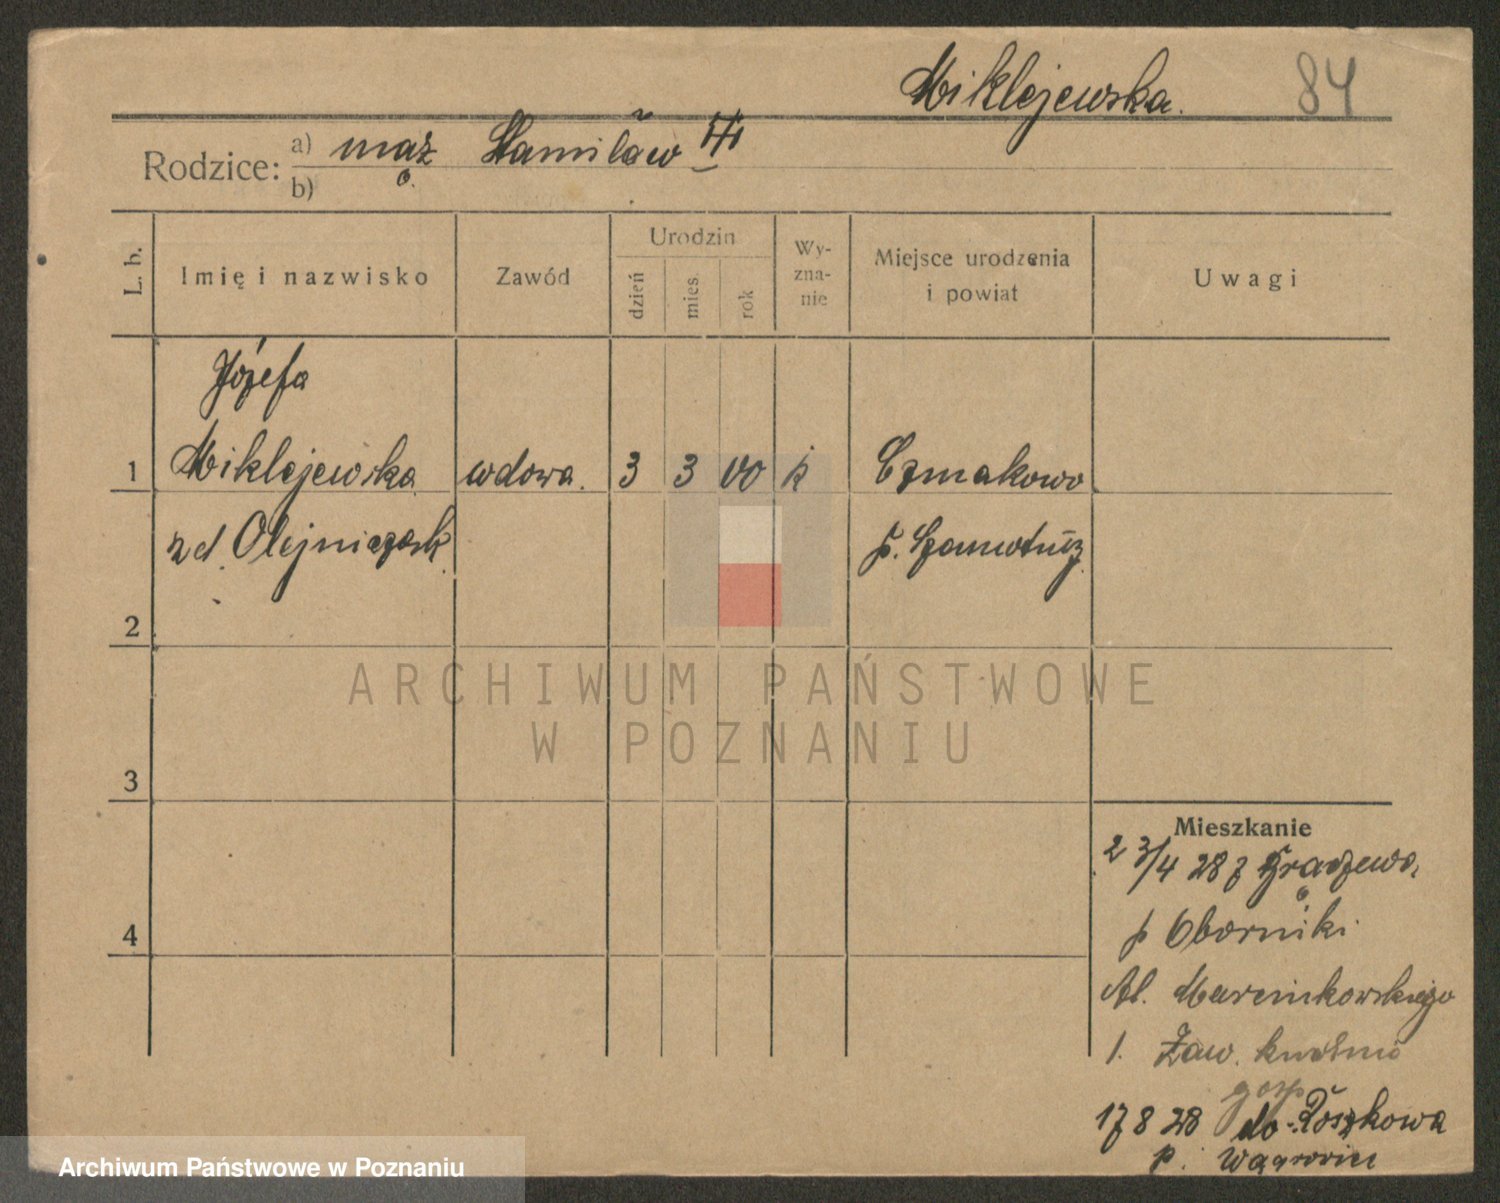 Miklejewska. 84
Rodzice: a) mąż Stanisław
b)
L. b. Imię i nazwisko Zawód Urodzin dzień mies. rok Wy-zna-nie Miejsce urodzenia i powiat Uwagi
Józefa
1 Miklejewska wdowa. 3 3 00 k Czmakowo
zd. Olejniczak p. Szamotuły
2
ARCHIWUM PAŃSTWOWE
W POZNANIU
3
Mieszkanie
2 3/4 28 z
4 p Oborniki
Al. Marcinkowskiego
1. Zaw.
gosp
17 8 28 do
p. Wągrowiec
Archiwum Państwowe w Poznaniu